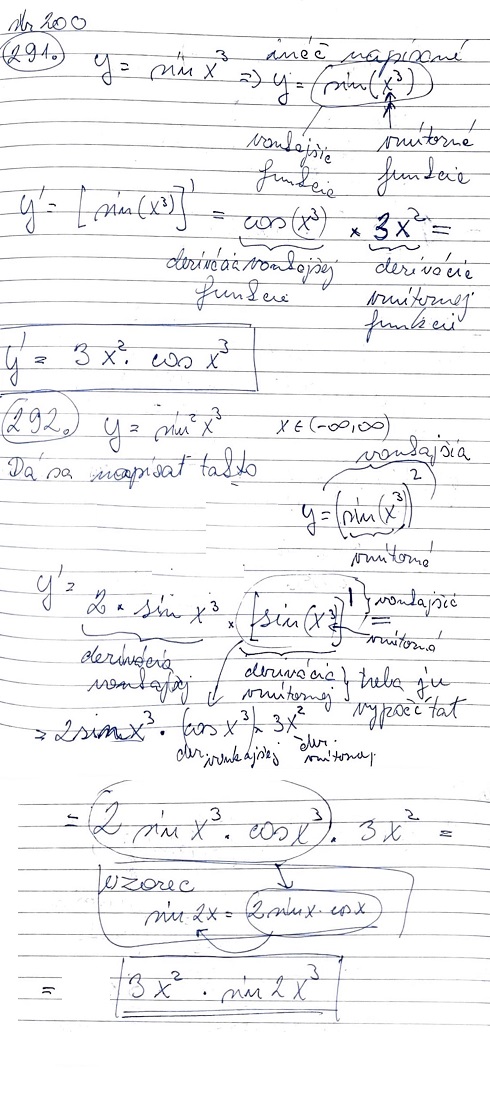 str 200
291. y = sin x³ ⇒ y = sin(x³)
ináč napísané
vonkajšia funkcia
vnútorná funkcia
y' = [sin(x³)]' = cos(x³) * 3x² =
derivácia vonkajšej funkcie
derivácia vnútornej funkcii
y' = 3x² · cos x³
292. y = sin² x³ x ∈ (-∞,∞)
Dá sa napísať takto
vonkajšia
y = (sin(x³))²
vnútorná
y' = 2 * sin x³ * [sin(x³)]' =
vonkajšia
vnútorná
derivácia vonkajšej
derivácia vnútornej } treba ju vypočítať
= 2 sin x³ · (cos x³) * 3x²
der. vonkajšej der. vnútornej
= 2 sin x³ · cos x³ · 3x² =
vzorec
sin 2x = 2 sin x · cos x
= 3x² · sin 2x³